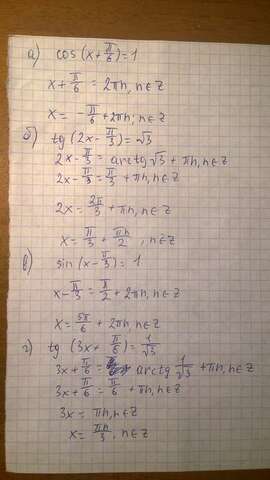 а) cos (x + π/6) = 1
x + π/6 = 2πn, n∈Z
x = -π/6 + 2πn; n∈Z
б) tg (2x - π/3) = √3
2x - π/3 = arctg √3 + πn, n∈Z
2x - π/3 = π/3 + πn, n∈Z
2x = 2π/3 + πn, n∈Z
x = π/3 + πn/2, n∈Z
в) sin (x - π/3) = 1
x - π/3 = π/2 + 2πn, n∈Z
x = 5π/6 + 2πn, n∈Z
г) tg (3x + π/6) = 1/√3
3x + π/6 = arctg 1/√3 + πn, n∈Z
3x + π/6 = π/6 + πn, n∈Z
3x = πn, n∈Z
x = πn/3, n∈Z